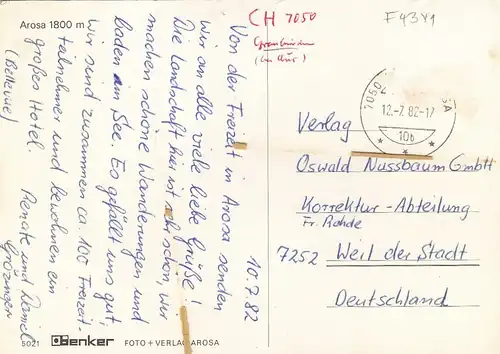 Arosa 1800 m
10.7.82
Von der Freizeit in Arosa senden
wir an alle viele liebe Grüße!
Die Landschaft hier ist sehr schön, wir
machen schöne Wanderungen und
baden am See. Es gefällt uns gut,
wir sind zusammen ca. 100 Freizeit-
teilnehmer und bewohnen ein
großes Hotel.
(Bellevue)
Renate und
5021
Benker
FOTO + VERLAG AROSA
CH 7050
Graubünden
F 9341
7050 AROSA
12.-7. 82-17
10b
Verlag
Oswald Nussbaum GmbH
Korrektur-Abteilung
Fr. Rohde
7252 Weil der Stadt
Deutschland